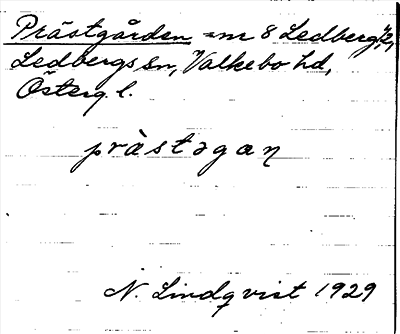 Prästgården =m 8 Ledberg ½,
Ledbergs sn, Valkebo hd,
Österg. l.
pràstəgaŋ
N. Lindqvist 1929